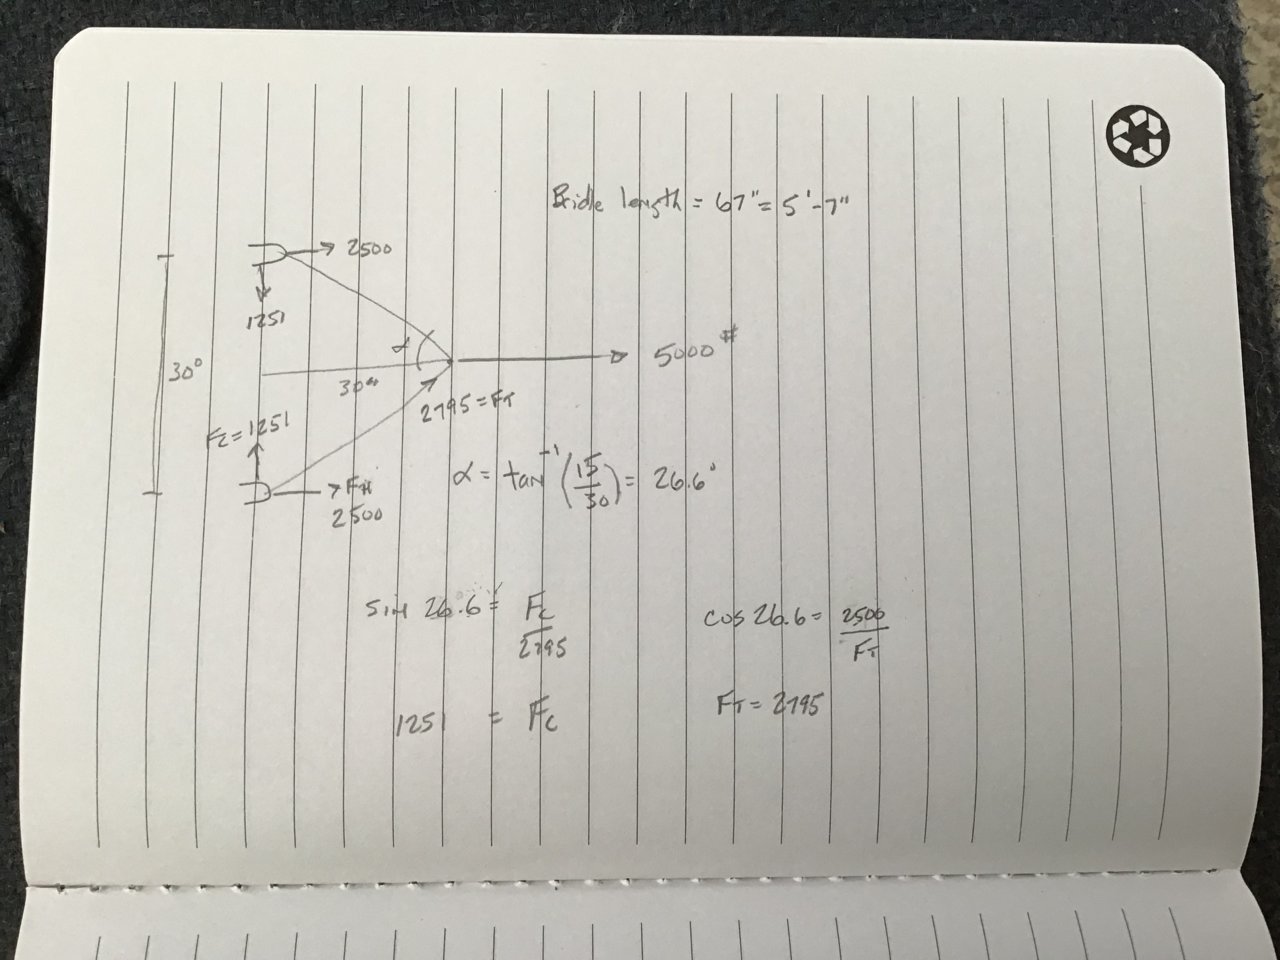 Bridle length = 67" = 5'-7"
2500
1251
α
30"
30"
5000#
2795 = FT
Fc = 1251
FH
2500
α = tan⁻¹(15/30) = 26.6°
sin 26.6 = Fc/2795
cos 26.6 = 2500/FT
1251 = Fc
FT = 2795